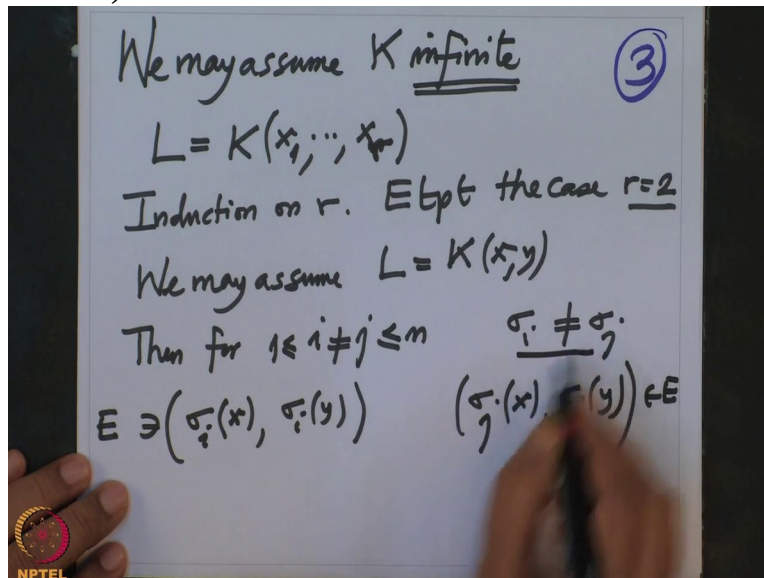 We may assume K infinite
3
L = K(x₁, ..., xᵣ)
Induction on r. Etpt the case r=2
We may assume L = K(x, y)
Then for 1 ≤ i ≠ j ≤ n σᵢ ≠ σⱼ
E ∋ (σᵢ(x), σᵢ(y)) (σⱼ(x), (y)) ∈ E
NPTEL